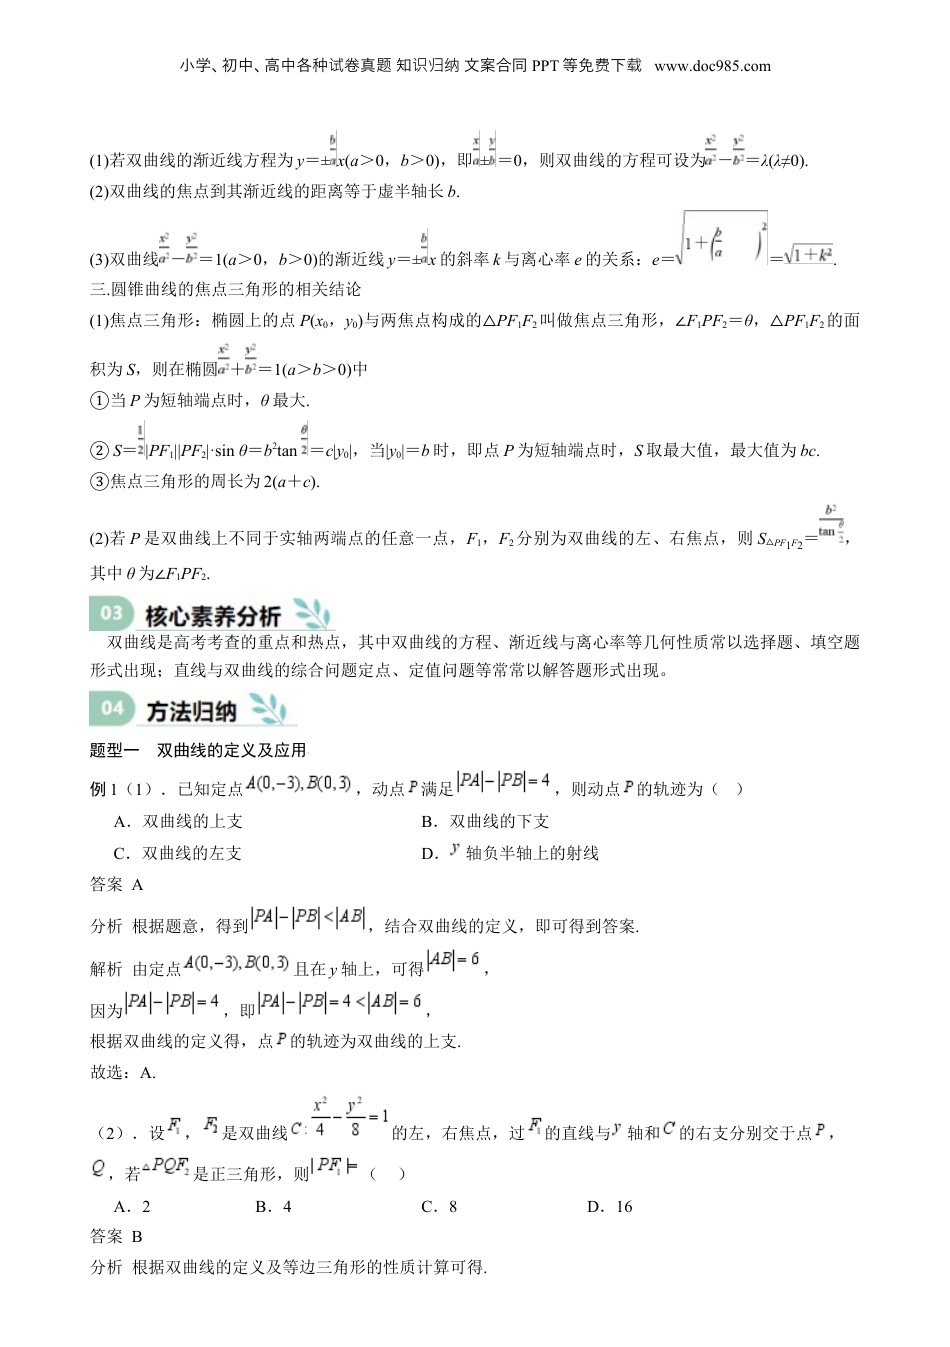 小学、初中、高中各种试卷真题 知识归纳 文案合同 PPT 等免费下载 www.doc985.com
(1)若双曲线的渐近线方程为 y＝±b/a x(a＞0，b＞0)，即x/a±y/b＝0，则双曲线的方程可设为x²/a²－y²/b²＝λ(λ≠0).
(2)双曲线的焦点到其渐近线的距离等于虚半轴长 b.
(3)双曲线x²/a²－y²/b²＝1(a＞0，b＞0)的渐近线 y＝±b/a x 的斜率 k 与离心率 e 的关系：e＝√(1＋(b/a)²)＝√(1＋k²).
三.圆锥曲线的焦点三角形的相关结论
(1)焦点三角形：椭圆上的点 P(x₀，y₀)与两焦点构成的△PF₁F₂叫做焦点三角形，∠F₁PF₂＝θ，△PF₁F₂的面
积为 S，则在椭圆x²/a²＋y²/b²＝1(a＞b＞0)中
①当 P 为短轴端点时，θ 最大.
② S＝1/2|PF₁||PF₂|·sin θ＝b²tan θ/2＝c|y₀|，当|y₀|＝b 时，即点 P 为短轴端点时，S 取最大值，最大值为 bc.
③焦点三角形的周长为 2(a＋c).
(2)若 P 是双曲线上不同于实轴两端点的任意一点，F₁，F₂分别为双曲线的左、右焦点，则 S△PF₁F₂＝b²/tan θ/2，
其中 θ 为∠F₁PF₂.
03 核心素养分析
双曲线是高考考查的重点和热点，其中双曲线的方程、渐近线与离心率等几何性质常以选择题、填空题
形式出现；直线与双曲线的综合问题定点、定值问题等常常以解答题形式出现。
04 方法归纳
题型一 双曲线的定义及应用
例 1（1）. 已知定点A(0,−3), B(0,3)，动点P满足|PA|−|PB|=4，则动点P的轨迹为（ ）
A．双曲线的上支 B．双曲线的下支
C．双曲线的左支 D．y 轴负半轴上的射线
答案 A
分析 根据题意，得到|PA|−|PB|<|AB|，结合双曲线的定义，即可得到答案.
解析 由定点A(0,−3), B(0,3)且在 y 轴上，可得|AB|=6，
因为|PA|−|PB|=4，即|PA|−|PB|=4<|AB|=6，
根据双曲线的定义得，点P的轨迹为双曲线的上支.
故选：A.
（2）. 设F₁，F₂是双曲线C: x²/4−y²/8=1的左，右焦点，过F₁的直线与y 轴和C的右支分别交于点P，
Q，若△PQF₂是正三角形，则|PF₁|=（ ）
A．2 B．4 C．8 D．16
答案 B
分析 根据双曲线的定义及等边三角形的性质计算可得.